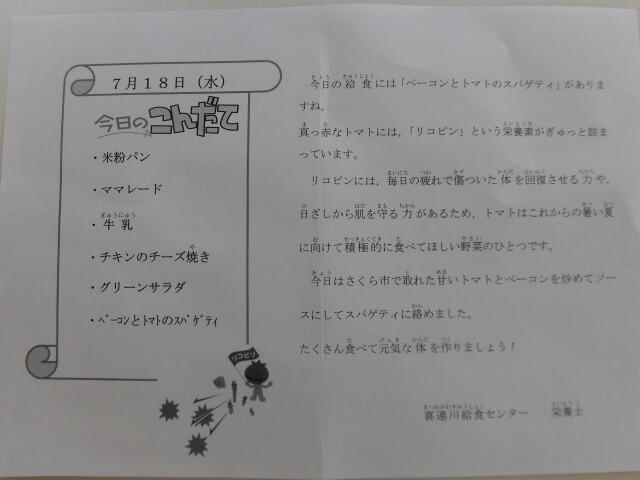 7月18日（水）
今日のこんだて
・米粉パン
・ママレード
・牛乳
・チキンのチーズ焼き
・グリーンサラダ
・ﾍﾞｰｺﾝとトマトのｽﾊﾟｹﾞﾃｨ
リコピン
今日の給食には「ベーコンとトマトのスパゲティ」がありま
すね。
真っ赤なトマトには，「リコピン」という栄養素がぎゅっと詰ま
っています。
リコピンには，毎日の疲れで傷ついた体を回復させる力や，
日ざしから肌を守る力があるため，トマトはこれからの暑い夏
に向けて積極的に食べてほしい野菜のひとつです。
今日はさくら市で取れた甘いトマトとベーコンを炒めてソー
スにしてスパゲティに絡めました。
たくさん食べて元気な体を作りましょう！
喜連川給食センター　栄養士